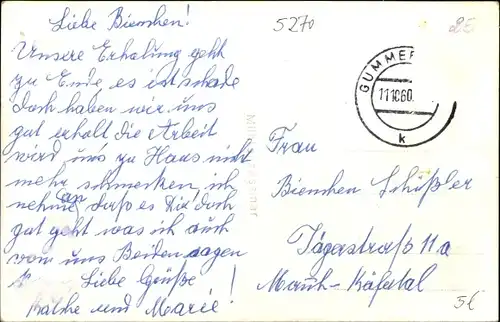 Liebe Bienchen!
Unsere Erholung geht
zu Ende, es ist schade
doch haben wir uns
gut erholt die Arbeit
wird uns zu Haus nicht
mehr schmecken, ich
nehme an daß es Dir doch
gut geht was ich auch
von uns Beiden sagen
k. Liebe Grüße!
und Marie!
5270
GUMMER
11.10.60.
k
Frau
Bienchen Schißler
Jägerstraße 11a
Manh-Käfertal